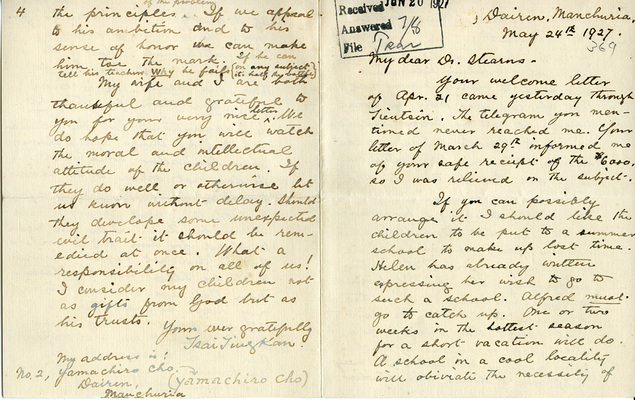 Received JUN 20 1927
Answered 7/8
File Tsar
, Dairen, Manchuria,
May 24th 1927.
369
My dear Dr. Stearns -
Your welcome letter
of Apr. 21 came yesterday through
Tientsin. The telegram you men-
tioned never reached me. Your
letter of March 29th informed me
of your safe reciept of the $6000.
so I was relieved on the subject.
If you can possibly
arrange it I should like the
children to be put to a summer
school to make up lost time.
Helen has already written
expressing her wish to go to
such a school. Alfred must
go to catch up. One or two
weeks in the hottest season
for a short vacation will do.
A school in a cool locality
will obiviate the necessity of
4
of the problem
the principles. If we appeal
to his ambition and to his
sense of honor we can make
him toe the mark. If he can
tell his teacher Why he fails (on any subject
it helps matters
My wife and I are both
thankful and grateful to
you for your very nice letter. We
do hope that you will watch
the moral and intellectual
attitude of the children. If
they do well or otherwise let
us know without delay. Should
they develope some unexpected
evil trait it should be rem-
edied at once. What a
responsibility on all of us!
I consider my children not
as gifts from God but as
his trusts.
Yours ever gratefully
Tsai Ting Kan.
My address is:
No. 2, Yamachiro Cho.
Dairen, (Yamachiro Cho)
Manchuria